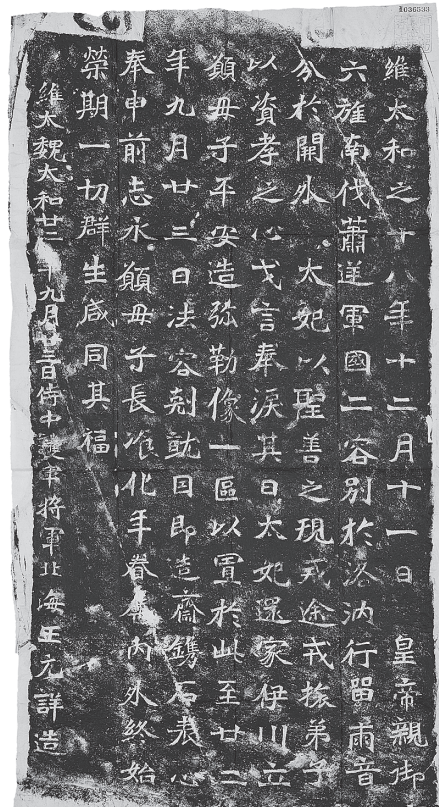 維太和之十八年十二月十一日皇帝親御
六旌南伐蕭逆軍國二容別於洛汭行留兩音
分於關外太妃以聖善之規戒途戎旅弟子
以資孝之心戈言奉淚其日太妃還家伊川立
願母子平安造弥勒像一區以置於此至廿二
年九月廿三日法容剋就因即造齋鐫石表心
奉申前志永願母子長瓫化年眷屬內外終始
榮期一切群生咸同其福
維太魏太和廿二年九月廿三日侍中護軍將軍北海王元詳造
1036533